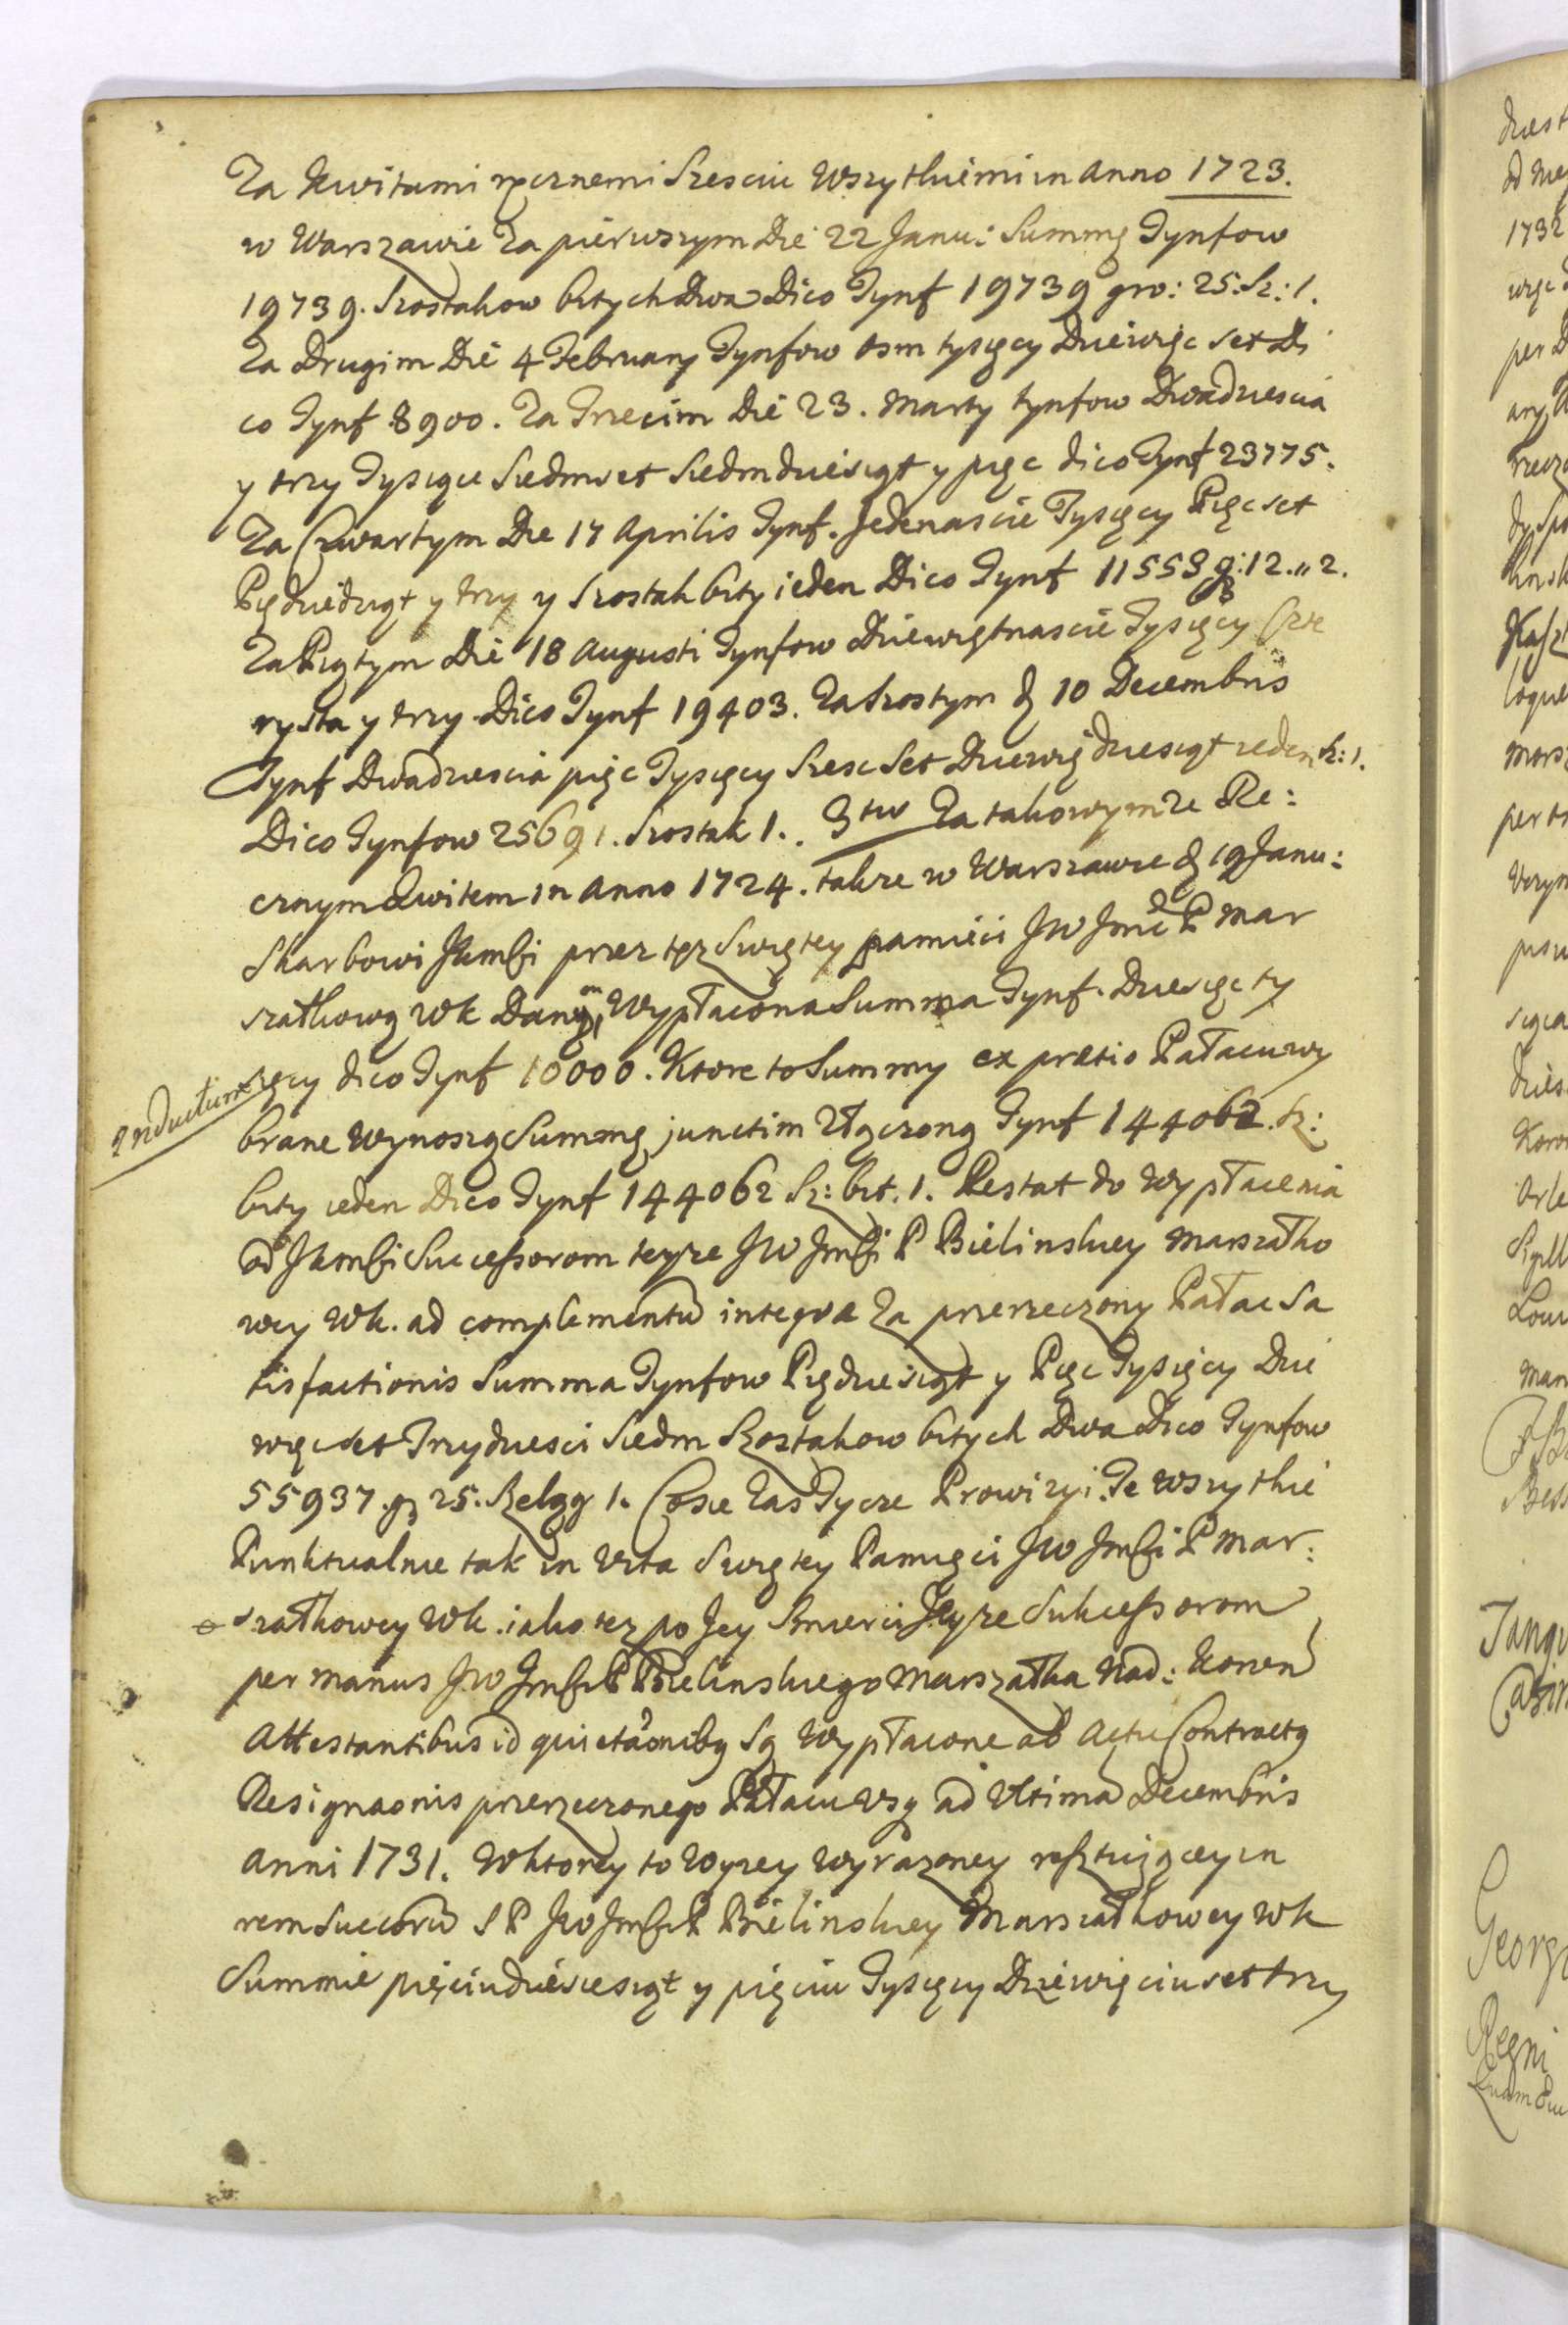 Za Kwitami ręcznemi Szesciu Wszytkiemi in Anno 1723.
w Warszawie Za pierwszym Die 22 Janu: Summę Tynfow
19739. Szostakow bitych Dwa Dico Tynf 19739 gro: 25: Sz: 1.
Za Drugim Die 4 February Tynfow osm tysięcy Dziewięc set Di
co Tynf 8900. Za Trzecim Die 23. Marty tynfow Dwadziescia
y trzy Tysiące Siedmset Siedmdziesiąt y pięc dico Tynf 23775.
Za Czwartym Die 17 Aprilis Tynf. Jedenascie Tysięcy Pięc set
Pięcdziedziąt y trzy y Szostak bity ieden Dico Tynf 11553 g: 12. 2.
Za Piątym Die 18 Augusti Tynfow Dziewiętnascie Tysięcy Czte
rysta y trzy Dico Tynf 19403. Za Szostym d 10 Decembris
Tynf Dwadziescia pięc Tysięcy Szesc Set Dziewiędziesiąt ieden sz: 1.
Dico Tynfow 25691. Szostak 1. 3tio Za takowymże Rę:
cznym Kwitem in Anno 1724. także w Warszawie d 19 Janu:
Skarbowi JKmści przez tęż Swiętey pamięci JW Jmć P Mar
szałkową WK Danym, Wypłacona Summa Tynf. Dziesięc ty
sięcy dico Tynf 10000. Ktore to Summy ex prætio Pałacu wy
Inductum
brane Wynoszą Summę junctim złączoną Tynf 144062. sz:
bity ieden Dico Tynf 144062 Sz: bit. 1. Restat do Wypłacenia
od JKmści Successorom teyże JW Jmści P Bielinskiey Marszałko
wey WK. ad complementu integræ Za przerzeczony Pałac Sa
tisfactionis Summa Tynfow Pięcdziesiąt y Pięc Tysięcy Dzie
więcset Trzydziesci Siedm Szostakow bitych Dwa Dico Tynfow
55937. g 25. Szeląg 1. Co sie Zas Tycze Prowizyi. Te wszytkie
Punktualnie tak in Vita Swiętey Pamięci JW Jmści P Mar:
szałkowey WK. iako też po Jey Smierci Jeyże Sukcessorom
per manus JW Jmści P Bielinskiego Marszałka Nad: Koron
Attestantibus id quietaonibq Są Wypłacone ab Actu Contractq
Resignaonis przerzeczonego Pałacu Vsq ad Vltima Decembris
Anni 1731. W ktorey to Wyzey Wyrazoney resztuiącey in
rem Succoru S P JW Jmści P Bielinskiey Marszałkowey WK
Summie pięciudziesiesiąt y pięciu Tysięcy Dziewięciuset trzy